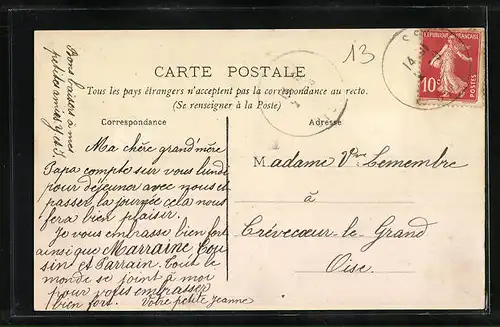 13
RÉPUBLIQUE FRANÇAISE
10c
POSTES
CARTE POSTALE
Tous les pays étrangers n'acceptent pas la correspondance au recto.
(Se renseigner à la Poste)
Correspondance
Adresse
Bons baisers à mes
petites
Ma chère grand'mère
Papa compte sur vous lundi
pour déjeuner avec nous et
passer la journée cela nous
fera bien plaisir.
Je vous embrasse bien fort
ainsi que Marraine Cou
sin et Parrain. Tout le
monde se joint à moi
pour vous embrasser
bien fort. Votre petite Jeanne
Madame Vve Lemembre
à
Crèvecœur-le-Grand
Oise.